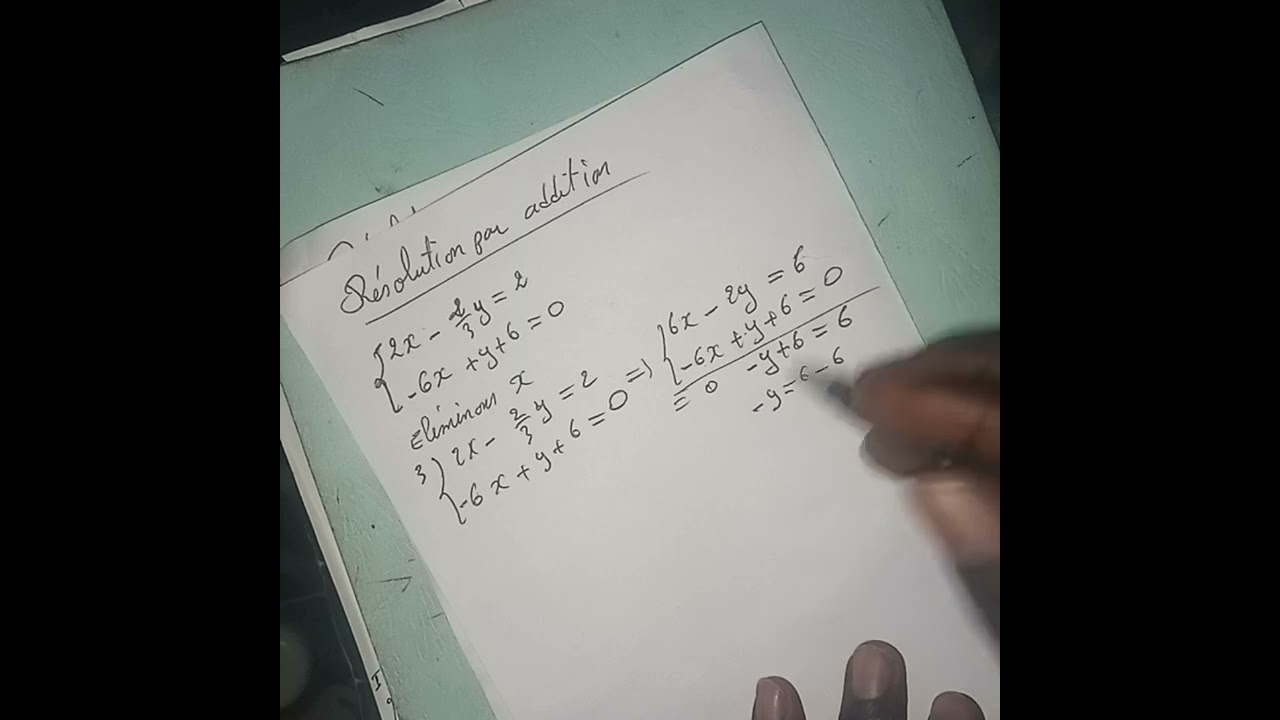 Résolution par addition
{2x - 2/3 y = 2
{-6x + y + 6 = 0
Éliminons x
3 {2x - 2/3 y = 2 => {6x - 2y = 6
{-6x + y + 6 = 0 {-6x + y + 6 = 0
= 0 -y + 6 = 6
-y = 6 - 6